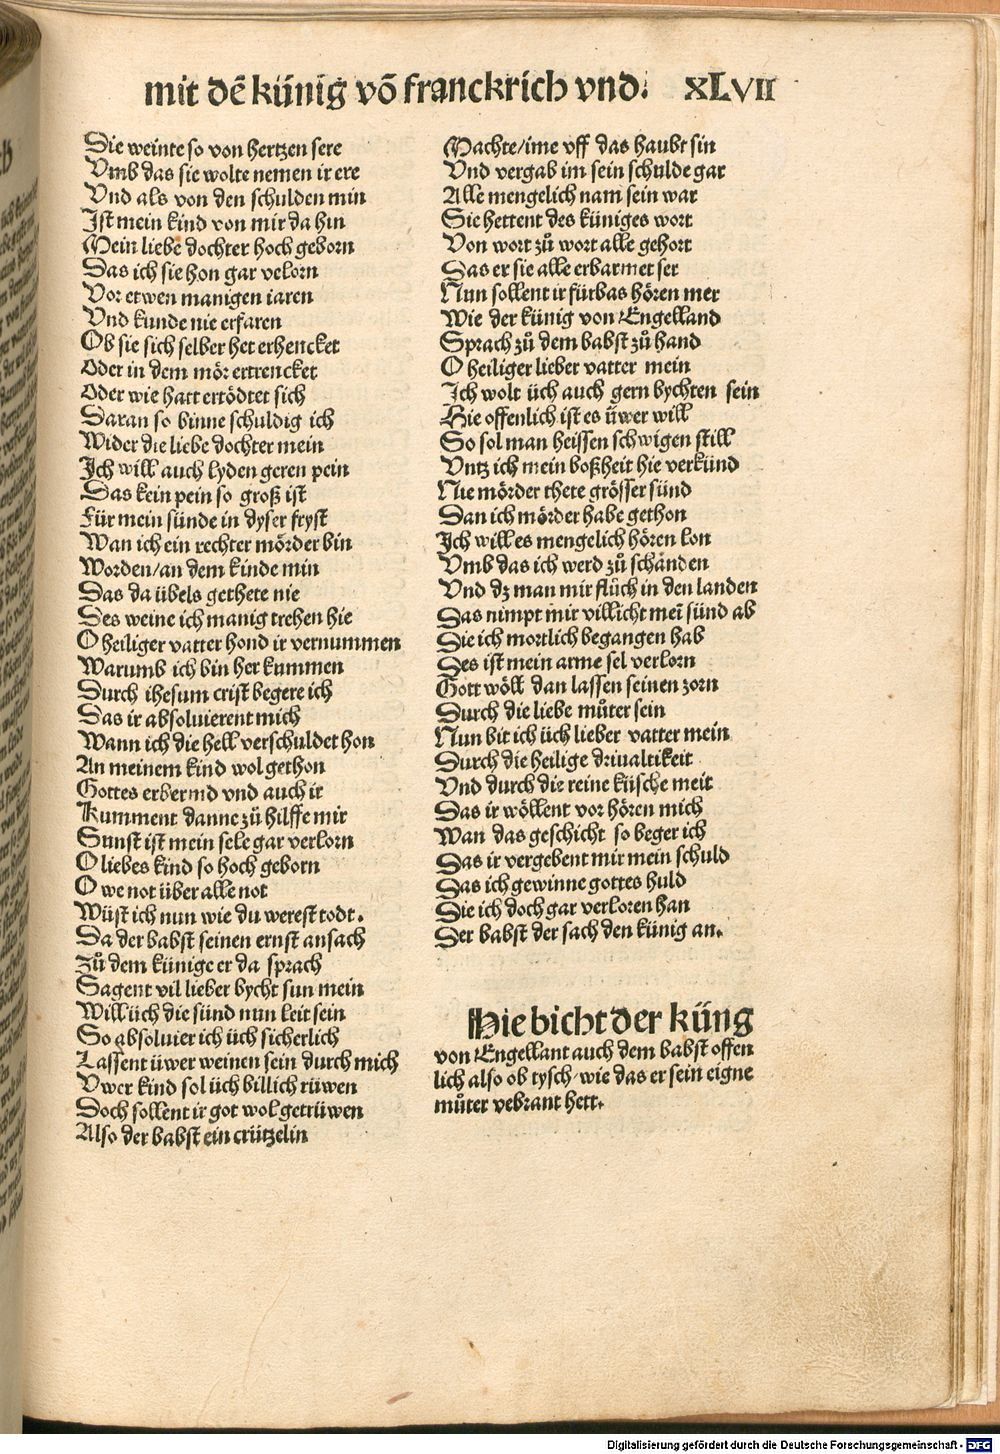 mit dẽ künig võ franckrich vnd. XLVII
Die weinte so von hertzen sere
Vmb das sie wolte nemen ir ere
Vnd als von den schulden min
Ist mein kind von mir da hin
Mein liebe dochter hoch geborn
Das ich sie hon gar velorn
Vor etwen manigen iaren
Vnd kunde nie erfaren
Ob sie sich selber het erhencket
Oder in dem mör ertrencket
Oder wie hatt ertödtet sich
Daran so binne schuldig ich
Wider die liebe dochter mein
Ich will auch lyden geren pein
Das kein pein so groß ist
Für mein sünde in dyser fryst
Wan ich ein rechter mörder bin
Worden/an dem kinde min
Das da übels gethete nie
Des weine ich manig trehen hie
O heiliger vatter hond ir vernummen
Warumb ich bin her kummen
Durch ihesum crist begere ich
Das ir absoluierent mich
Wann ich die hell verschuldet hon
An meinem kind wol gethon
Gottes erbermd vnd auch ir
Kumment danne zů hilffe mir
Sunst ist mein sele gar verlorn
O liebes kind so hoch geborn
O we not über alle not
Wüst ich nun wie du werest todt.
Da der babst seinen ernst ansach
Zů dem künige er da sprach
Sagent vil lieber bycht sun mein
Will üch die sünd nun leit sein
So absoluier ich üch sicherlich
Lassent üwer weinen sein durch mich
Vwer kind sol üch billich rüwen
Doch sollent ir got wol getrüwen
Also der babst ein crützelin
Machte/ime vff das haubt sin
Vnd vergab im sein schulde gar
Alle mengelich nam sein war
Sie hettent des küniges wort
Von wort zů wort alle gehort
Das er sie alle erbarmet ser
Nun sollent ir fürbas hören mer
Wie der künig von Engelland
Sprach zů dem babst zů hand
O heiliger lieber vatter mein
Ich wolt üch auch gern bychten sein
Hie offenlich ist es üwer will
So sol man heissen schwigen still
Vntz ich mein boßheit hie verkünd
Nie mörder thete grösser sünd
Dan ich mörder habe gethon
Ich will es mengelich hören lon
Vmb das ich werd zů schanden
Vnd dz man mir flůch in den landen
Das nimpt mir villicht meī sünd ab
Die ich mortlich begangen hab
Des ist mein arme sel verlorn
Gott wöll dan lassen seinen zorn
Durch die liebe můter sein
Nun bit ich üch lieber vatter mein
Durch die heilige driualtikeit
Vnd durch die reine küsche meit
Das ir wöllent vor hören mich
Wan das geschicht so beger ich
Das ir vergebent mir mein schuld
Das ich gewinne gottes huld
Die ich doch gar verloren han
Der babst der sach den künig an.
Hie bicht der küng
von Engellant auch dem babst offen
lich also ob tysch/wie das er sein eigne
můter vebrant hett.
Digitalisierung gefördert durch die Deutsche Forschungsgemeinschaft - DFG